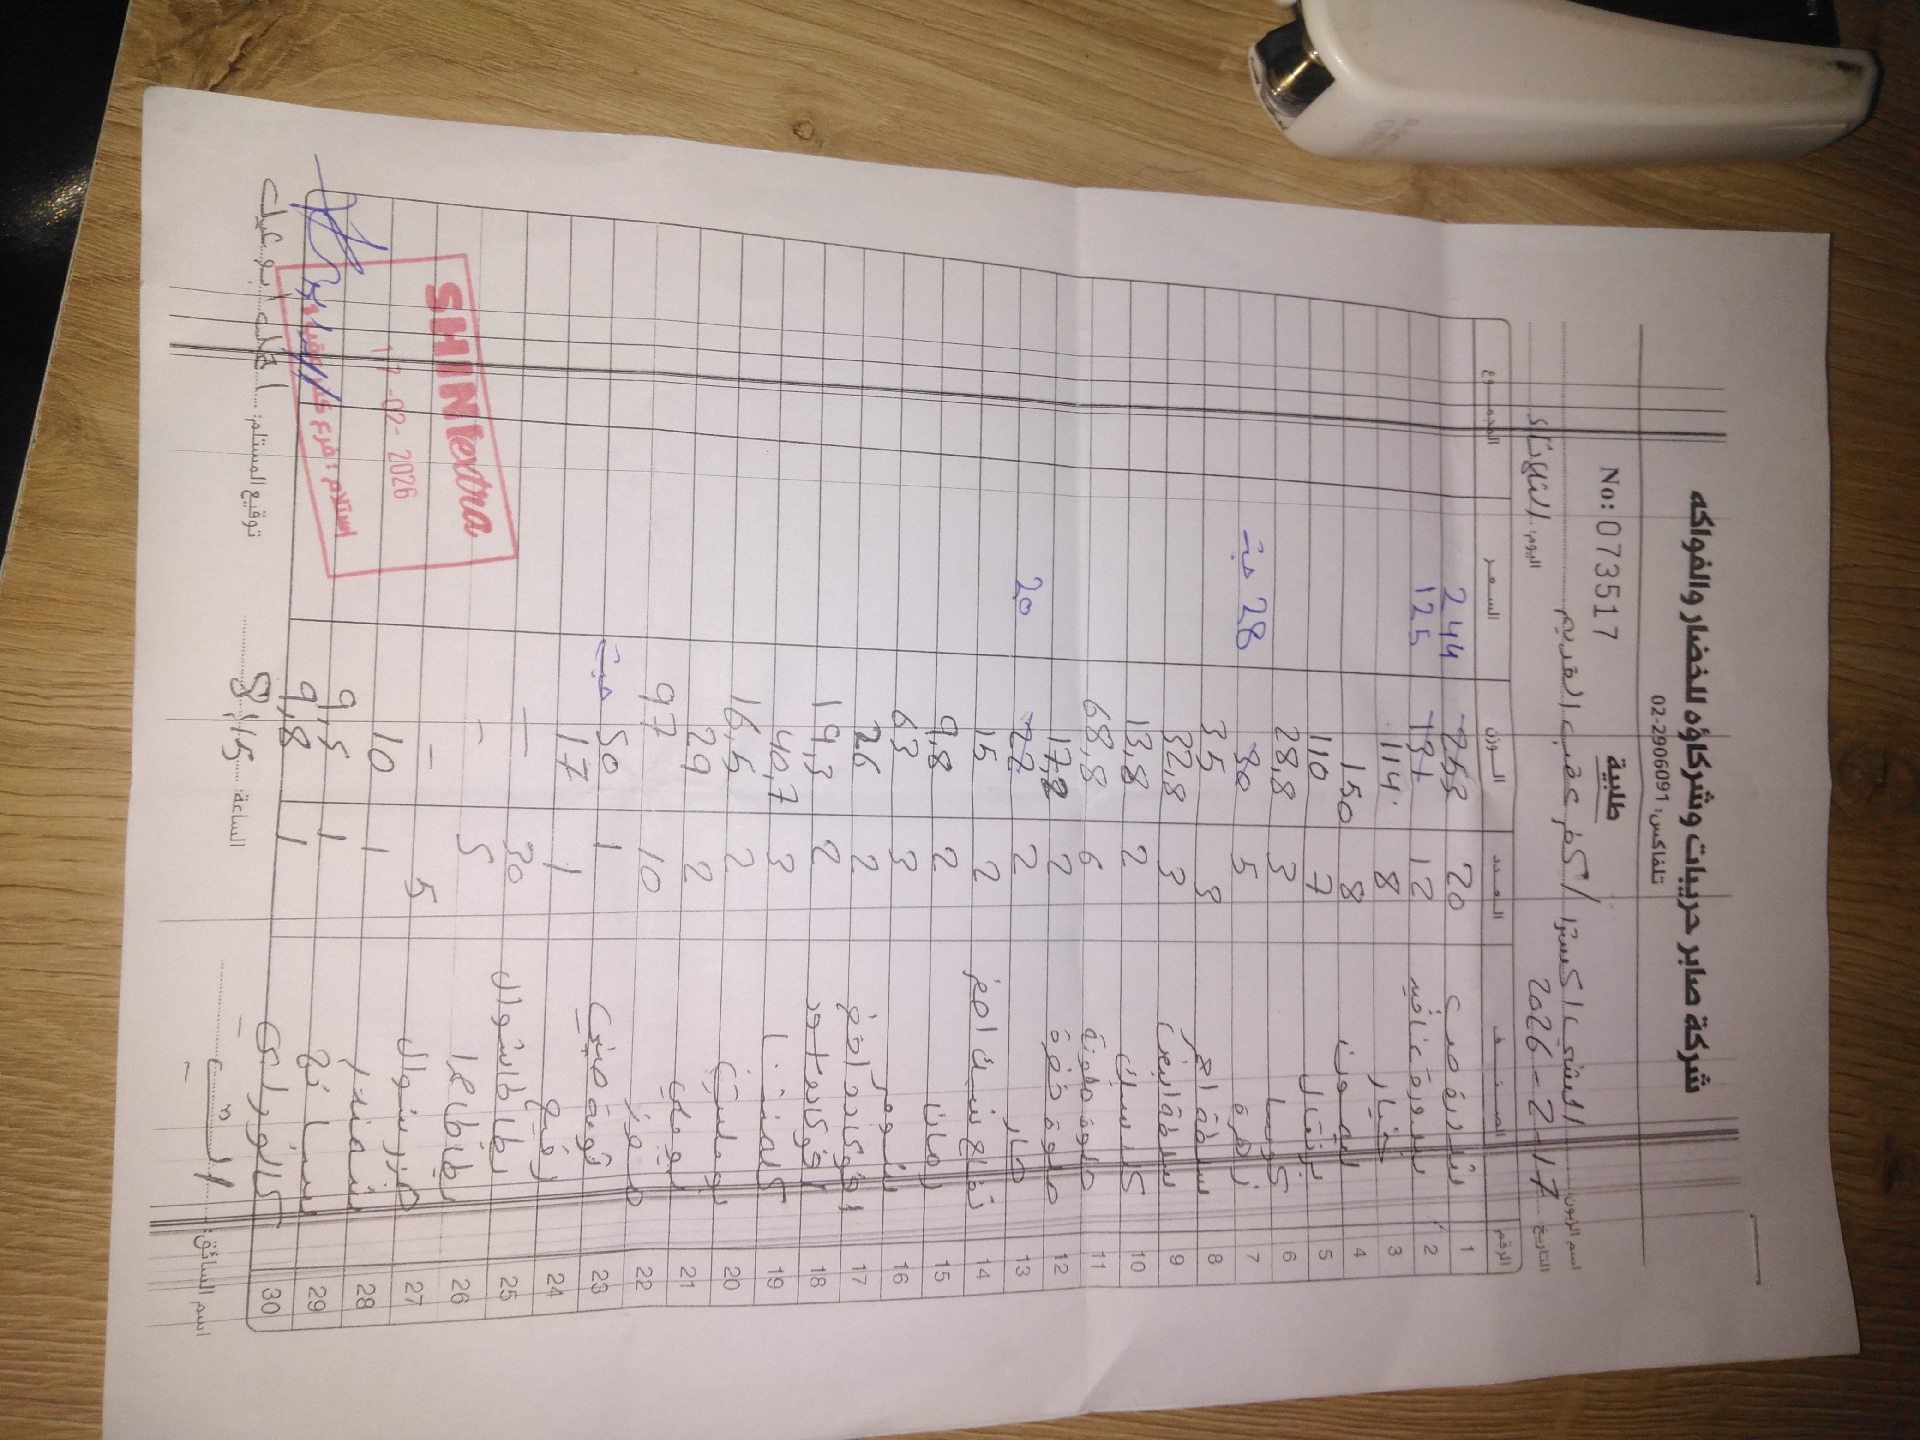 شركة صابر حريبات وشركاؤه للخضار والفواكه
تلفاكس: 02-2906091
طلبية
No: 073517
اسم الزبون: الشني اكسترا / كفر عقب القديم
التاريخ: 17-2-2026 اليوم: الثلاثاء
الرقم الصنف العدد الوزن السعر المجموع
1 بندورة 20 253 244
2 بندورة عناقيد 12 131 125
3 خيار 8 114
4 ليمون 8 150
5 برتقال 7 110
6 كوسا 3 28,8
7 زهرة 5 30 28 حبة
8 ملفوف احمر 3 35
9 ملفوف ابيض 3 32,8
10 2 13,8
11 حلوة ملونة 6 68,8
12 حلوة خضرة 2 17,8
13 حار 2 22 20
14 تفاح سكري اخضر 2 15
15 رمان 2 9,8
16 3 63
17 افوكادو اخضر 2 26
18 افوكادو اسود 2 19,3
19 كلمنتينا 3 40,7
20 بوملي 2 16,5
21 2 29
22 موز 10 97
23 ثومة صيني 1 50 حبة
24 1 17
25 بطاطا شوال 30 -
26 بطاطا 5 -
27 جزر شوال 5 -
28 شمندر 1 10
29 سبانخ 1 9,5
30 1 9,8
SHINI extra
17-02-2026
اسم السائق: الساعة: 8,15 توقيع المستلم: